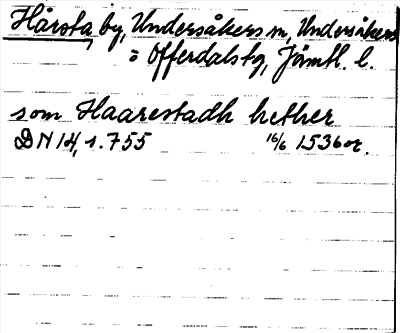 Hårsta, by, Undersåkers sn, Undersåkers
= Offerdals tg, Jämtl. l.
som Haarestadh hether
DN 14, s. 755 16/6 1536 or.